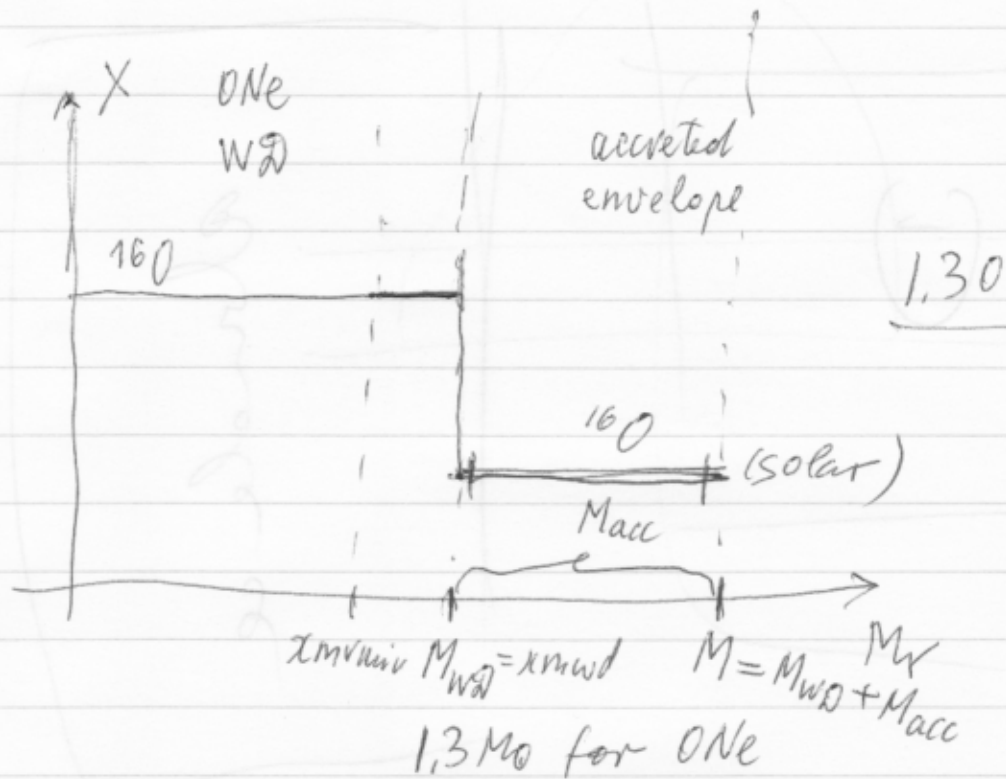 X
ONe
WD
accreted
envelope
16O
1.30
16O
(solar)
Macc
xmrmin MWD = xmwd
M = MWD + Macc
Mr
1,3 M⊙ for ONe